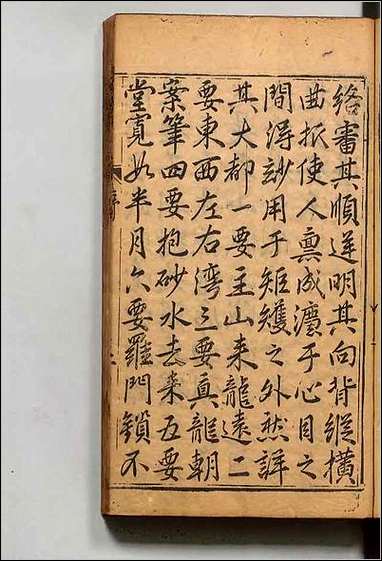 絡審其順逆明其向背縱橫
曲折使人禀成灋于心目之
間得玅用于矩矱之外然詳
其大都一要主山来龍遠二
要東西左右湾三要真龍朝
案筆四要抱砂水去来五要
堂寛如半月六要羅門鎖不
序